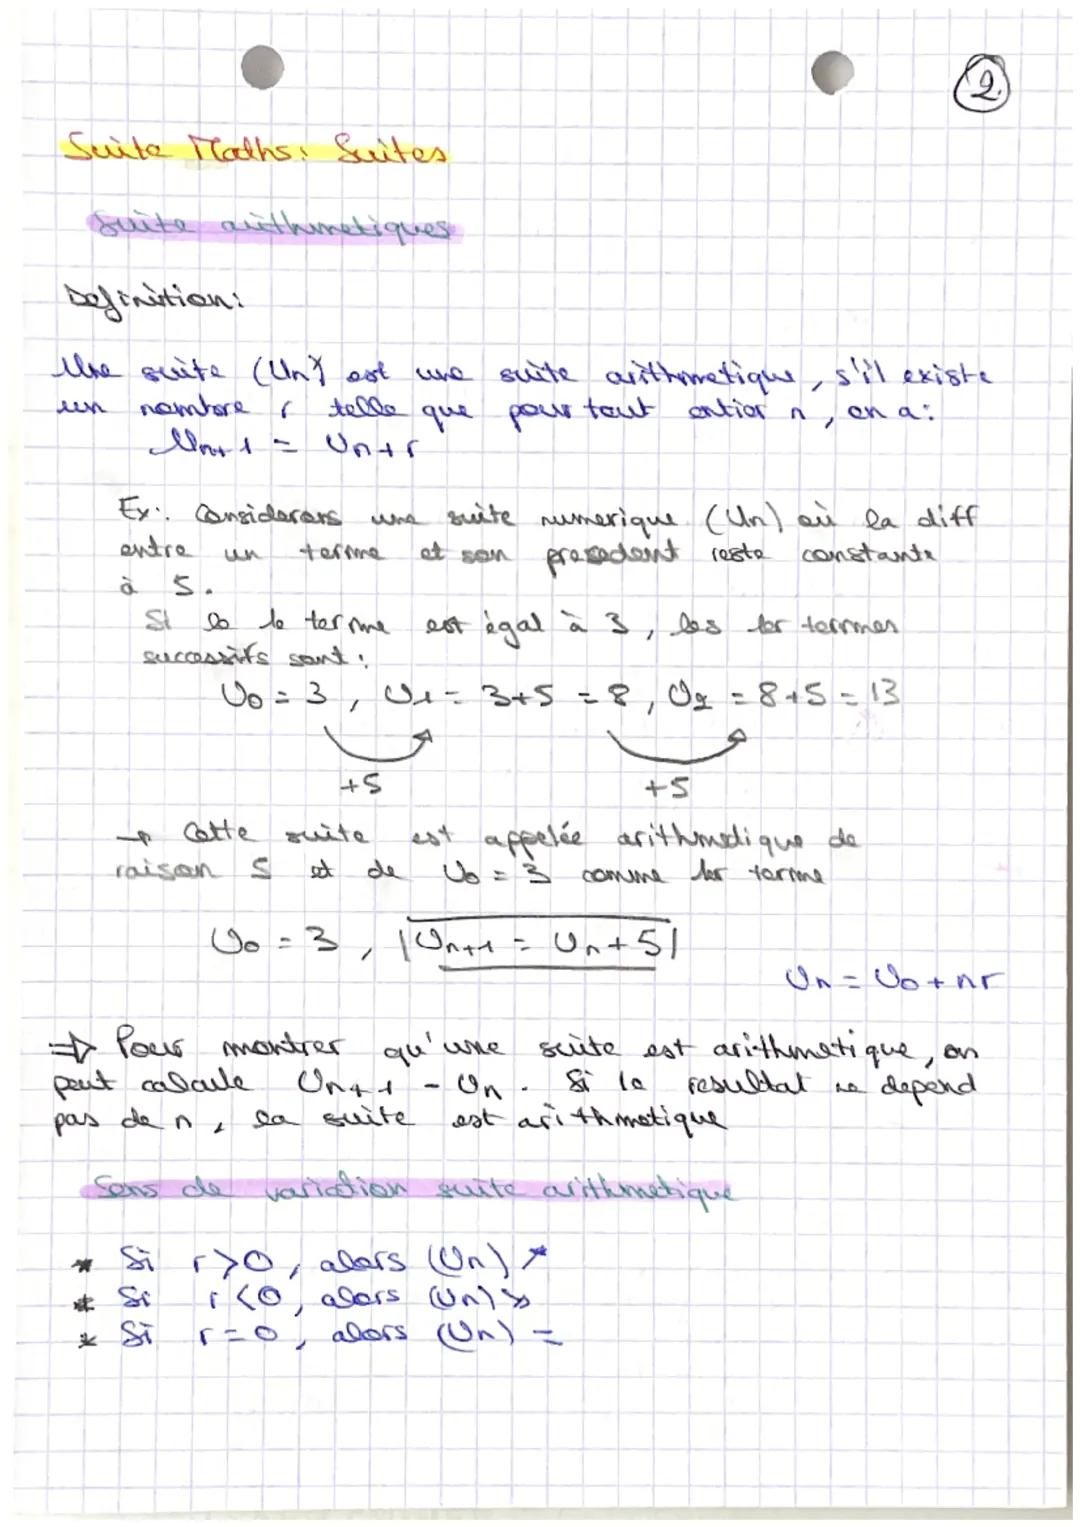 2.
Suite Maths: Suites
Suite arithmetiques
Definition:
Une suite (Un) est une suite arithmetique, s'il existe
un nombre r telle que pour tout entier n, on a:
Un+1 = Un+r
Ex: Considerons une suite numerique (Un) où la diff
entre un terme et son precedent reste constante
à 5.
Si le terme est égal à 3, les 1er termes
successifs sont:
U0 = 3, U1 = 3+5 = 8, U2 = 8+5 = 13
+5 +5
→ Cette suite est appelée arithmetique de
raison 5 et de U0 = 3 comme 1er terme
U0 = 3, |Un+1 = Un+5|
Un = U0 + nr
⇒ Pour montrer qu'une suite est arithmetique, on
peut calcule Un+1 - Un. Si le resultat ne depend
pas de n, la suite est arithmetique
Sens de variation suite arithmetique
* Si r>0, alors (Un) ↗
* Si r<0, alors (Un) ↘
* Si r=0, alors (Un) =